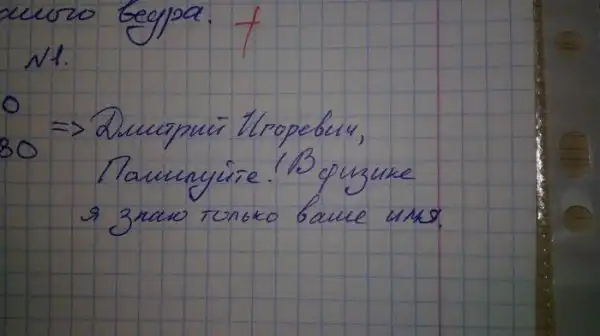 ого ведра. +
N1.
0
80
=> Дмитрий Игоревич,
Помилуйте! В физике
я знаю только ваше имя.